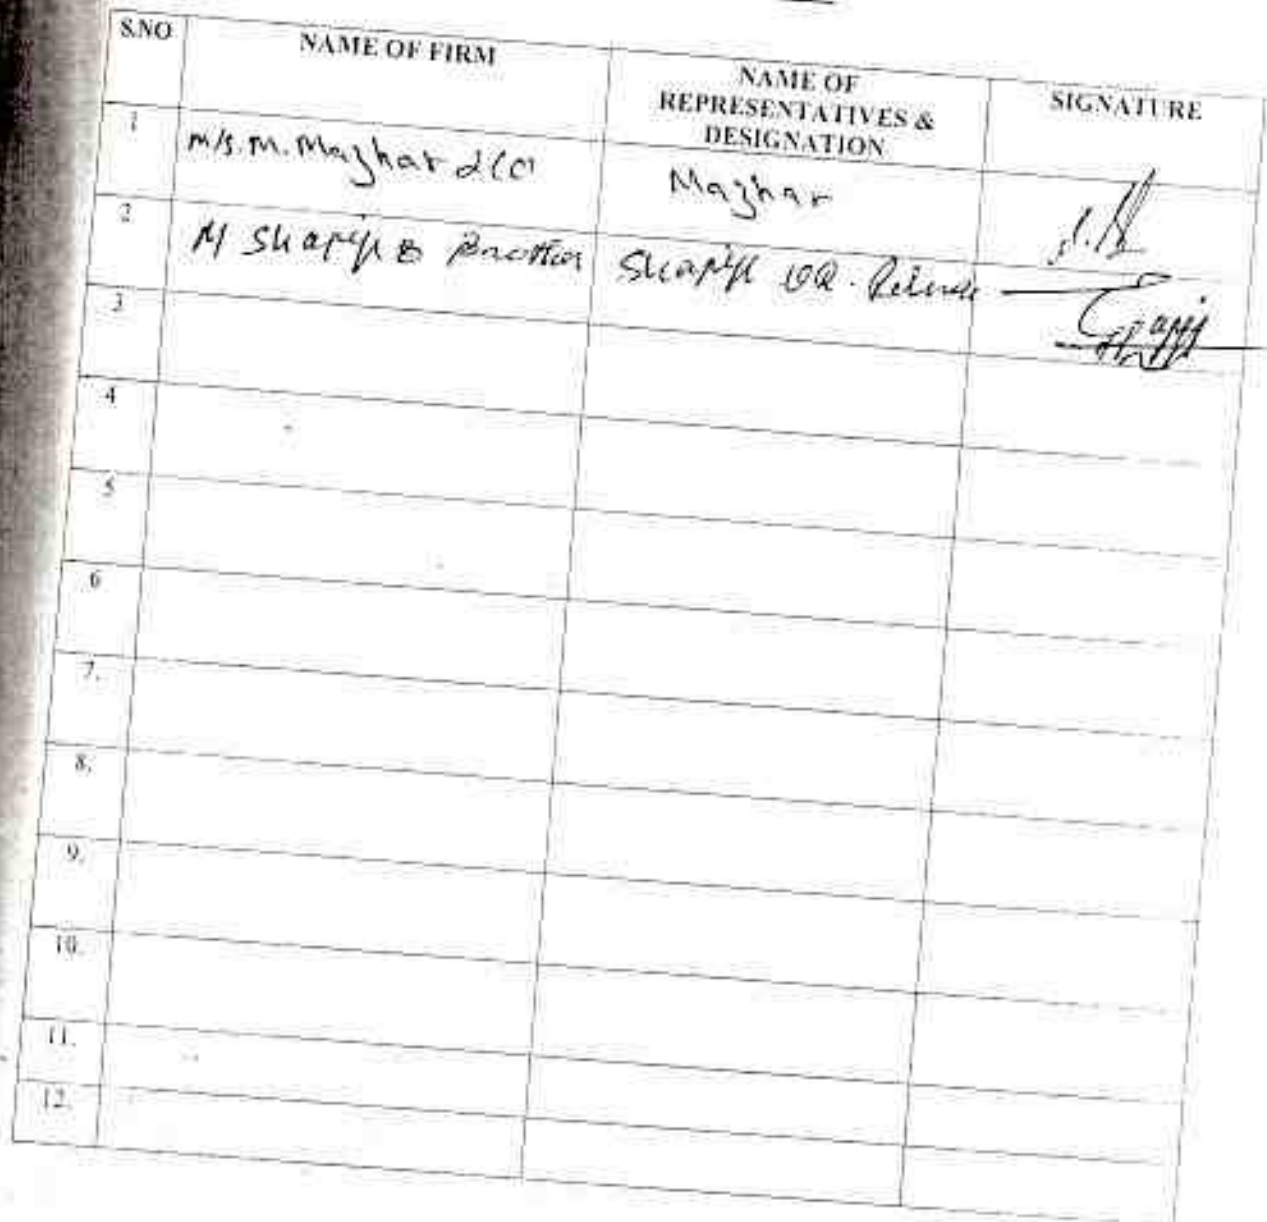 S.NO
NAME OF FIRM
NAME OF
REPRESENTATIVES &
DESIGNATION
SIGNATURE
1
M/s. M. Mazhar & Co
Mazhar
2
M Sharif & Brother
Sharif
3
4
5
6
7.
8.
9.
10.
11.
12.